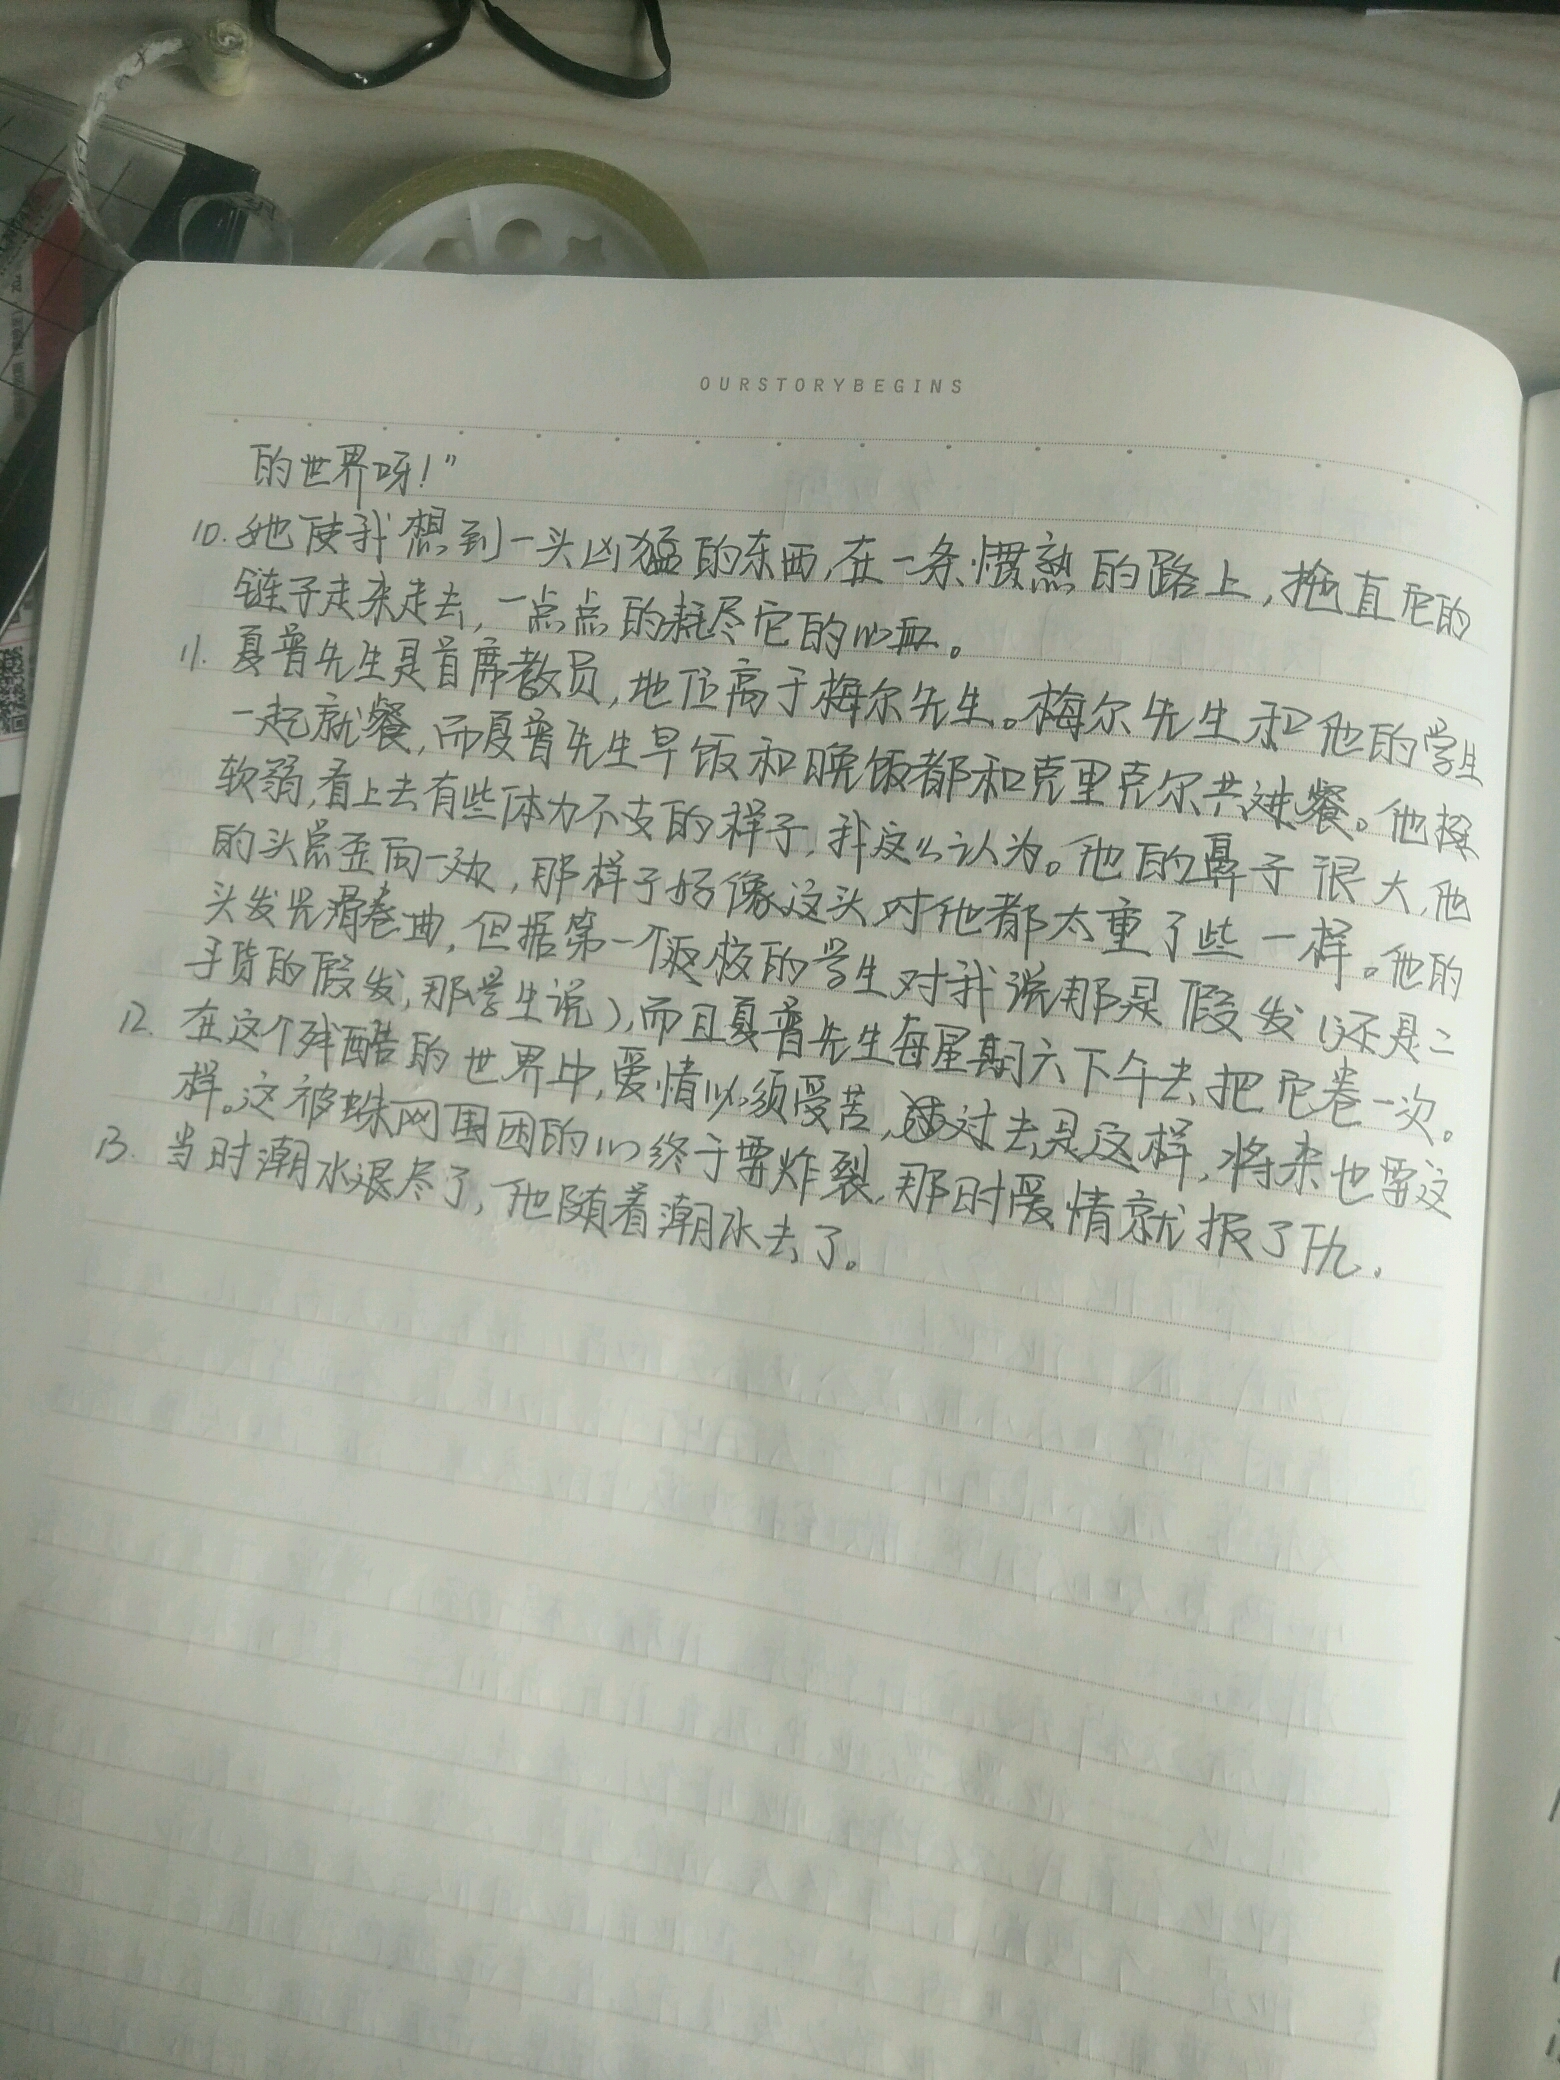 OURSTORYBEGINS
的世界呀！”
10. 她使我想到一头凶猛的东西,在一条惯熟的路上,拖直它的
链子走来走去,一点点的耗尽它的心血。
11. 夏普先生是首席教员,地位高于梅尔先生。梅尔先生和他的学生
一起就餐,而夏普先生早饭和晚饭都和克里克尔共进餐。他挺
软弱,看上去有些体力不支的样子,我这么认为。他的鼻子很大,他
的头总歪向一边,那样子好像这头对他都太重了些一样。他的
头发光滑卷曲,但据第一个返校的学生对我说那是假发(还是二
手货的假发,那学生说),而且夏普先生每星期六下午去把它卷一次。
12. 在这个残酷的世界中,爱情必须受苦,过去是这样,将来也要这
样。这被蛛网围困的心终于要炸裂,那时爱情就报了仇.
13. 当时潮水退尽了,他随着潮水去了。